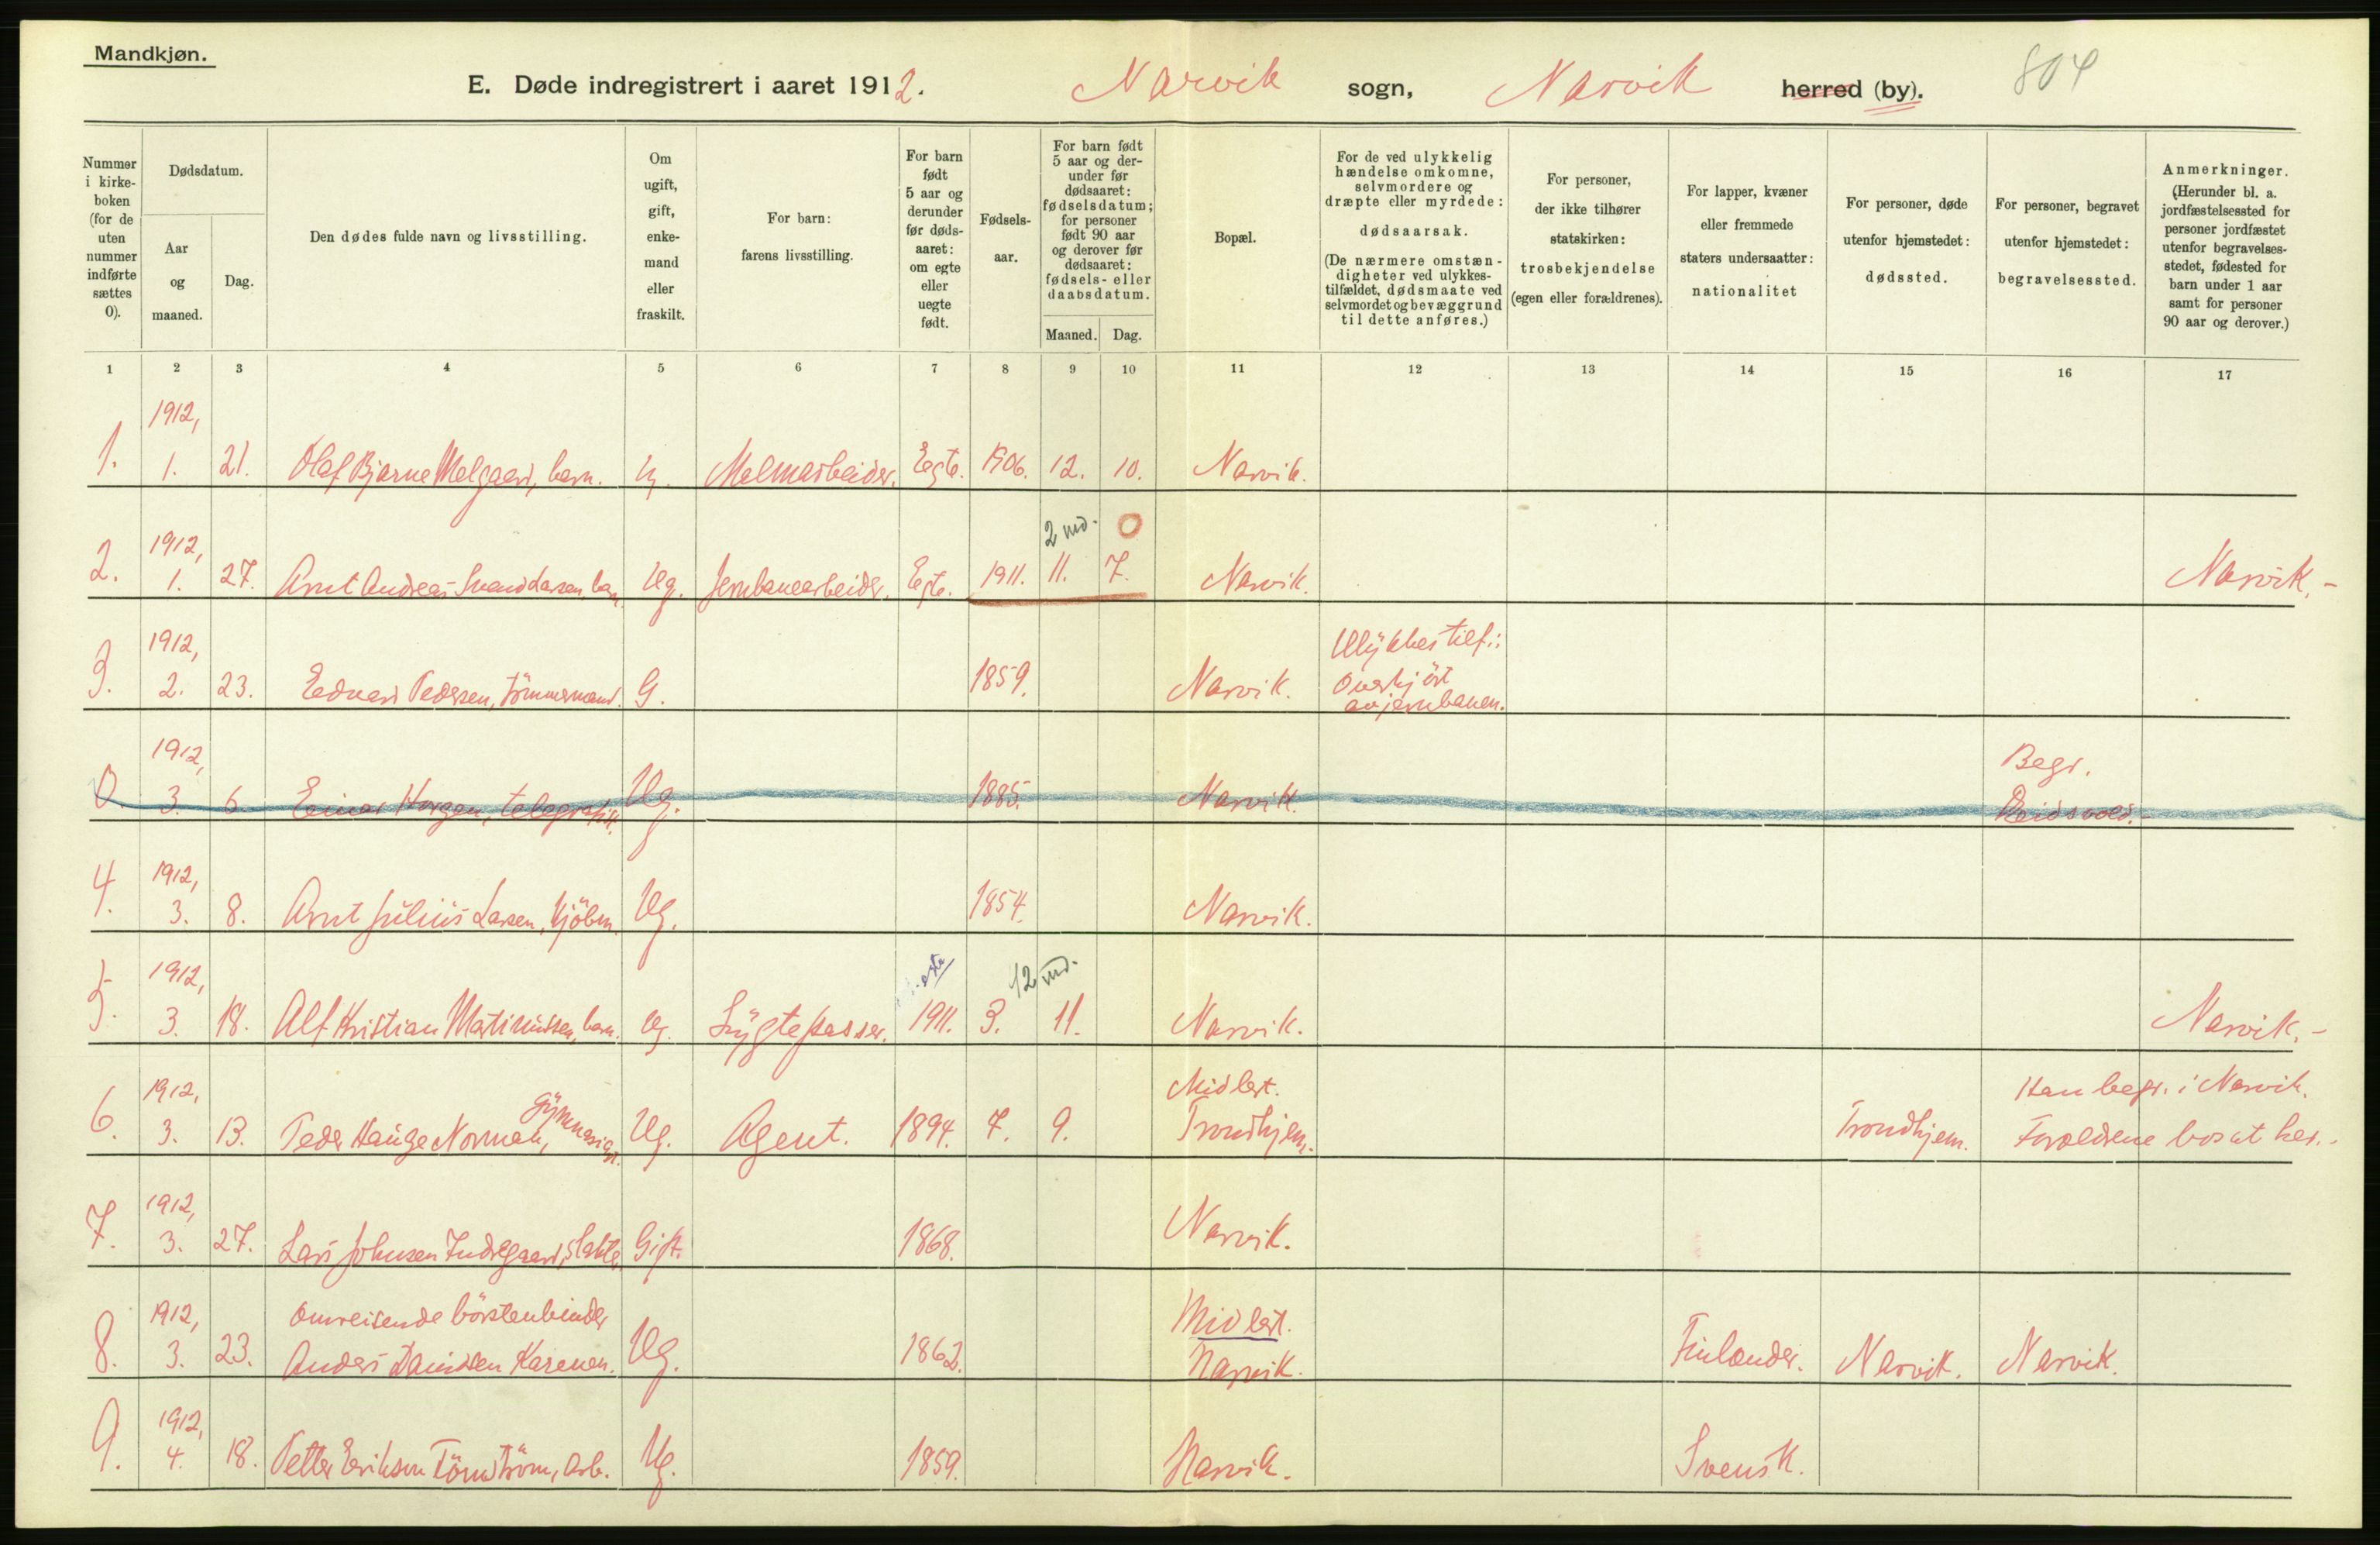 Mandkjøn.
E. Døde indregistrert i aaret 1912. Narvik sogn, Narvik herred (by). 804
Nummer i kirke- boken (for de uten nummer indførte sættes 0).
Dødsdatum.
Aar og maaned.
Dag.
Den dødes fulde navn og livsstilling.
Om ugift, gift, enke- mand eller fraskilt.
For barn: farens livsstilling.
For barn født 5 aar og derunder før døds- aaret: om egte eller uegte født.
Fødsels- aar.
For barn født 5 aar og der- under før dødsaaret: fødselsdatum; for personer født 90 aar og derover før dødsaaret: fødsels- eller daabsdatum.
Maaned. Dag.
Bopæl.
For de ved ulykkelig hændelse omkomne, selvmordere og dræpte eller myrdede: dødsaarsak. (De nærmere omstæn- digheter ved ulykkes- tilfældet, dødsmaate ved selvmordet og bevæggrund til dette anføres.)
For personer, der ikke tilhører statskirken: trosbekjendelse (egen eller forældrenes).
For lapper, kvæner eller fremmede staters undersaatter: nationalitet
For personer, døde utenfor hjemstedet: dødssted.
For personer, begravet utenfor hjemstedet: begravelsessted.
Anmerkninger. (Herunder bl. a. jordfæstelsessted for personer jordfæstet utenfor begravelses- stedet, fødested for barn under 1 aar samt for personer 90 aar og derover.)
1 2 3 4 5 6 7 8 9 10 11 12 13 14 15 16 17
1912,
1. 1. 21. Olaf Bjarne Melgaard, barn. U. Malmarbeider. Egte. 1906. 12. 10. Narvik.
1912, 2 md. 0
2. 1. 27. Arnt Andreas Larsen, barn Ug. Jernbanearbeider. Egte. 1911. 11. 7. Narvik. Narvik.-
1912, Ulykkestilf.:
3. 2. 23. Edvard Pedersen, tömmermand. G. 1859. Narvik. Overkjört
av jernbanen.
1912, Begr.
0 3. 6 Einar Horgen, telegrafist. Ug. 1885. Narvik. Eidsvold.-
1912,
4. 3. 8. Arnt Julius Larsen, kjöbm. Ug. 1854. Narvik.
1912, egte 12 md.
5. 3. 18. Alf Kristian Martinussen, barn. Ug. Lygtepasser. 1911. 3. 11. Narvik. Narvik.-
1912, Gymnasiast. Midlert. Han begr. i Narvik.
6. 3. 13. Peder Hauge Normak, Ug. Agent. 1894. 7. 9. Trondhjem. Trondhjem. Forældrene bosat her.-
1912,
7. 3. 27. Lars Johnsen Indregaard, slakter Gift. 1868. Narvik.
1912, Omreisende börstenbinder Midlert.
8. 3. 23. Anders Danielsen Karenen. Ug. 1862. Narvik. Finlænder. Narvik. Narvik.
1912,
9. 4. 18. Petter Eriksen Törnström, Arb. Ug. 1859. Narvik. Svensk.